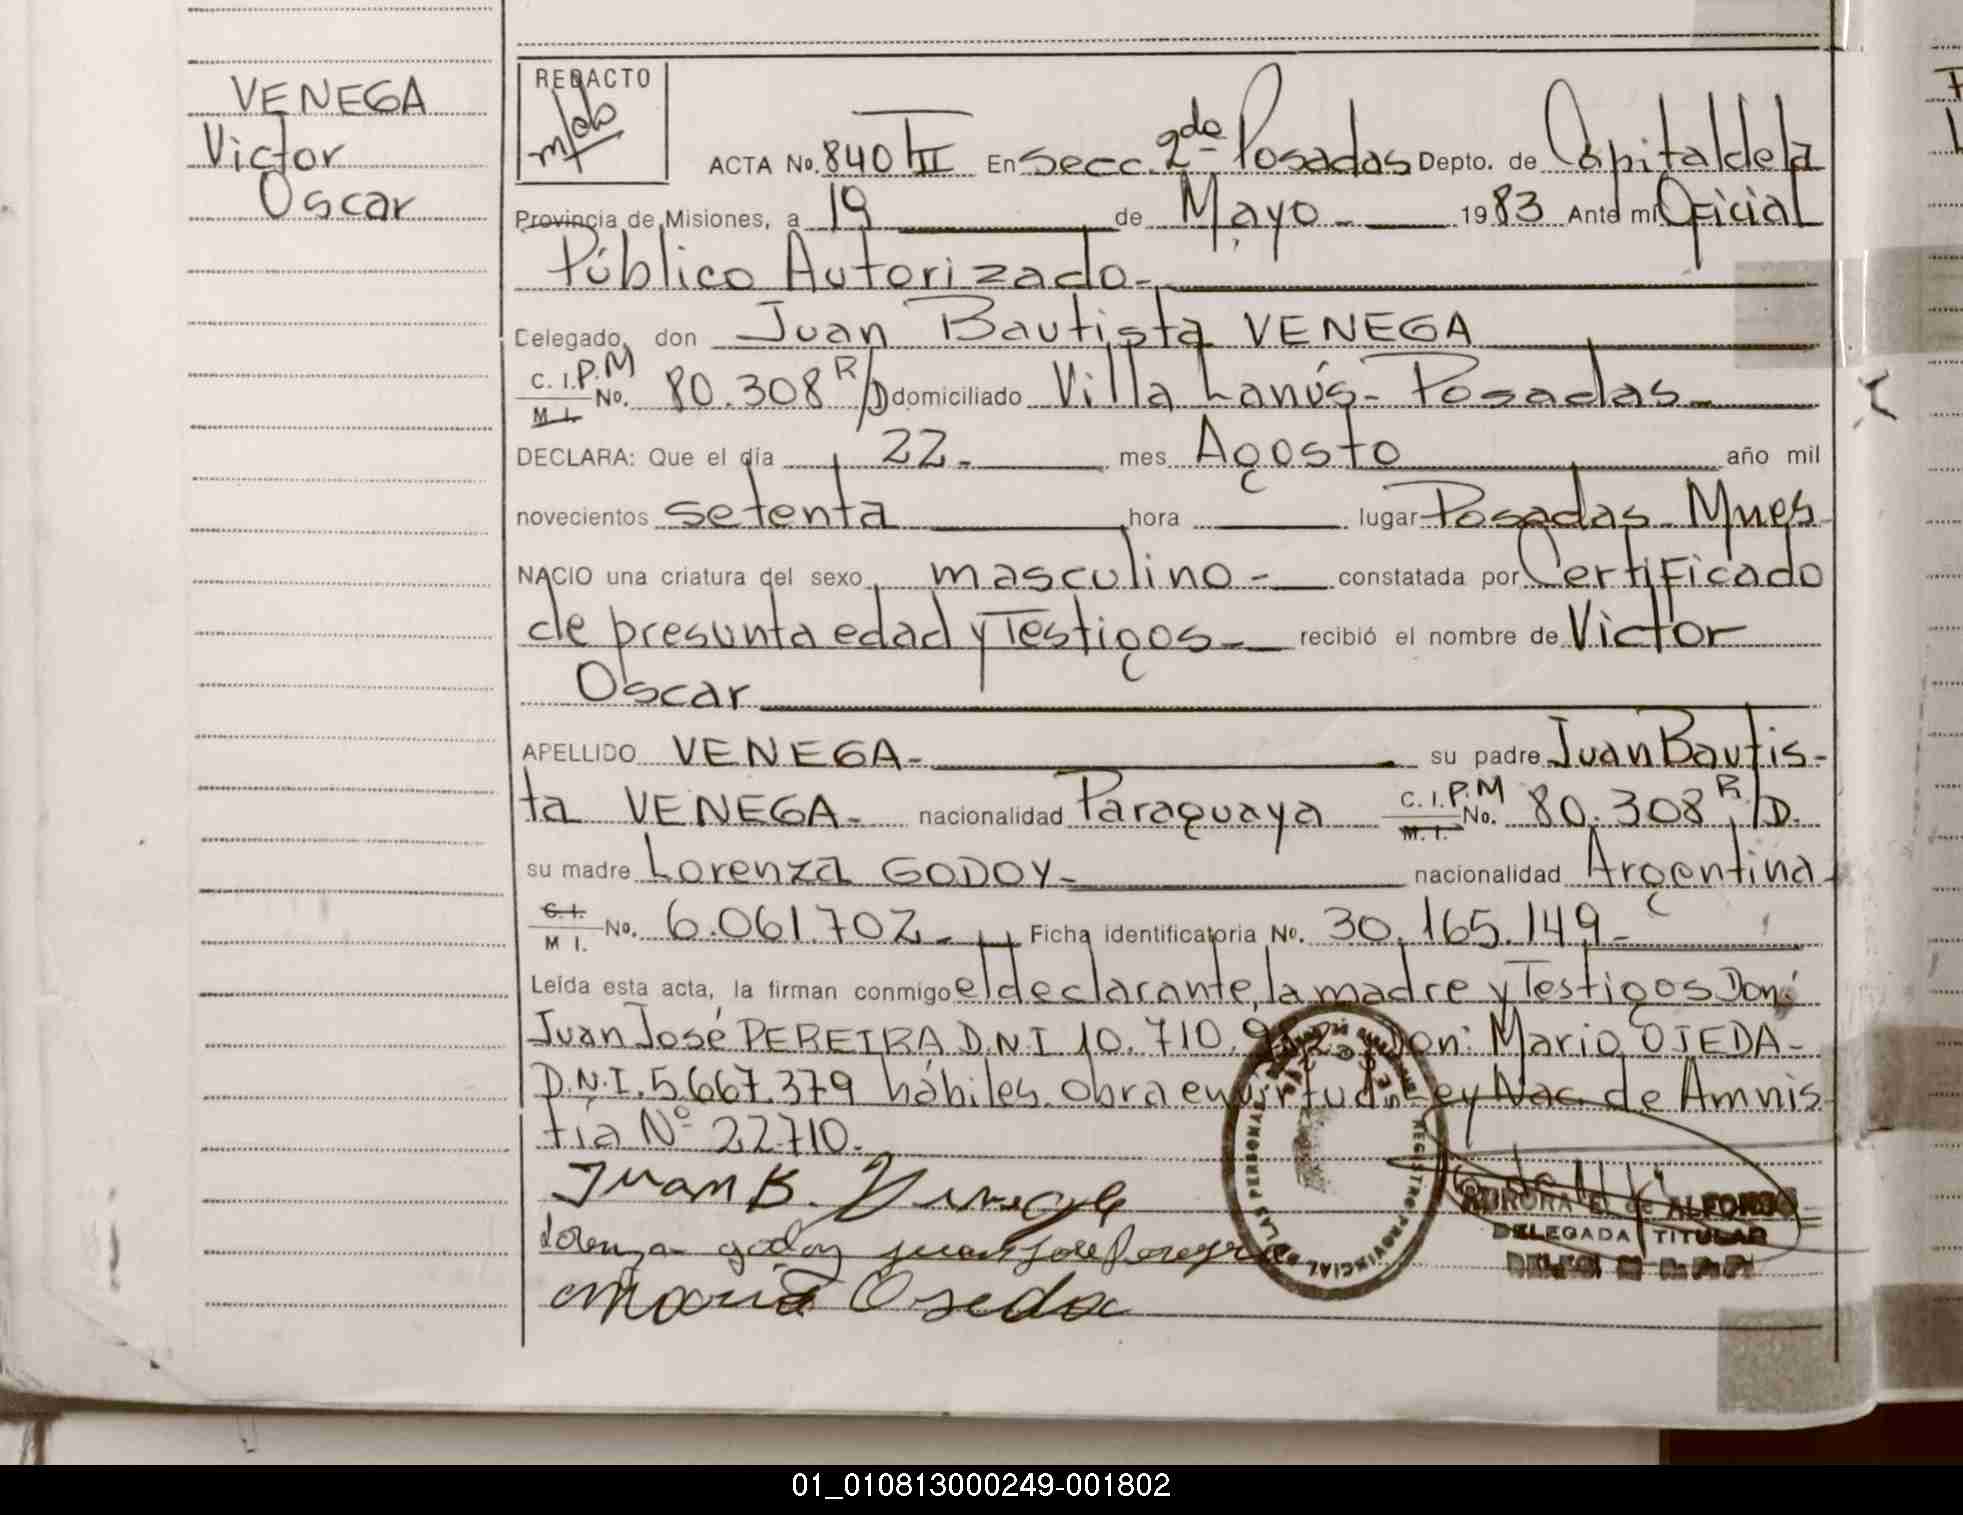 VENEGA
Victor
Oscar
REDACTO
ACTA No. 840 III En Secc. 2da Posadas Depto. de Capital de la
Provincia de Misiones, a 19 de Mayo - 1983 Ante mí Oficial
Público Autorizado -
Delegado, don Juan Bautista VENEGA
C. I. P.M
M. I. No. 80.308 R/D domiciliado Villa Lanús - Posadas -
DECLARA: Que el día 22 - mes Agosto año mil
novecientos setenta hora lugar Posadas Mnes
NACIO una criatura del sexo masculino - constatada por Certificado
de presunta edad y Testigos - recibió el nombre de Victor
Oscar
APELLIDO VENEGA - su padre Juan Bautis-
ta VENEGA - nacionalidad Paraguaya C. I. P.M M. I. No. 80.308 R/D.
su madre Lorenza GODOY - nacionalidad Argentina
C. I.
M I. No. 6.061.702 - Ficha identificatoria No. 30.165.149 -
Leída esta acta, la firman conmigo el declarante, la madre y Testigos Don:
Juan José PEREIRA D.N.I 10.710. Don: Mario OJEDA -
D.N.I. 5.667.379 hábiles. Obra en virtud Ley Nac. de Amnis
tía Nº 22710.
Juan B. Venega
Lorenza godoy Juan Jose Pereyra
Mario Ojeda
REGISTRO PROVINCIAL DE LAS PERSONAS
AURORA E. de ALFONSO
DELEGADA TITULAR
01_010813000249-001802